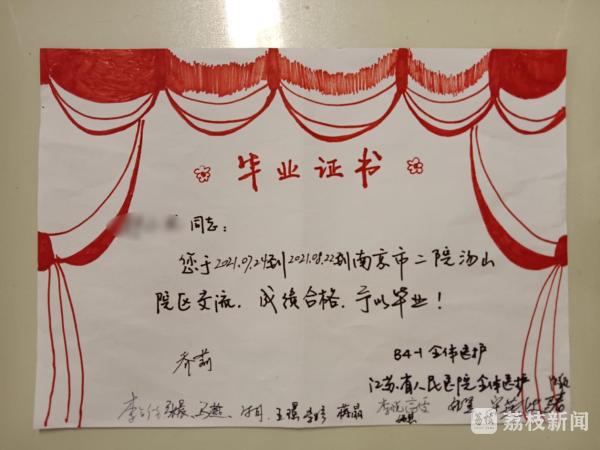 毕业证书
同志：
您于2021.07.24到2021.08.22到南京市二院汤山
院区交流，成绩合格，予以毕业！
乔莉
B4-1全体医护
江苏省人民医院全体医护
王璟 李倩 蒋晶
荔枝新闻